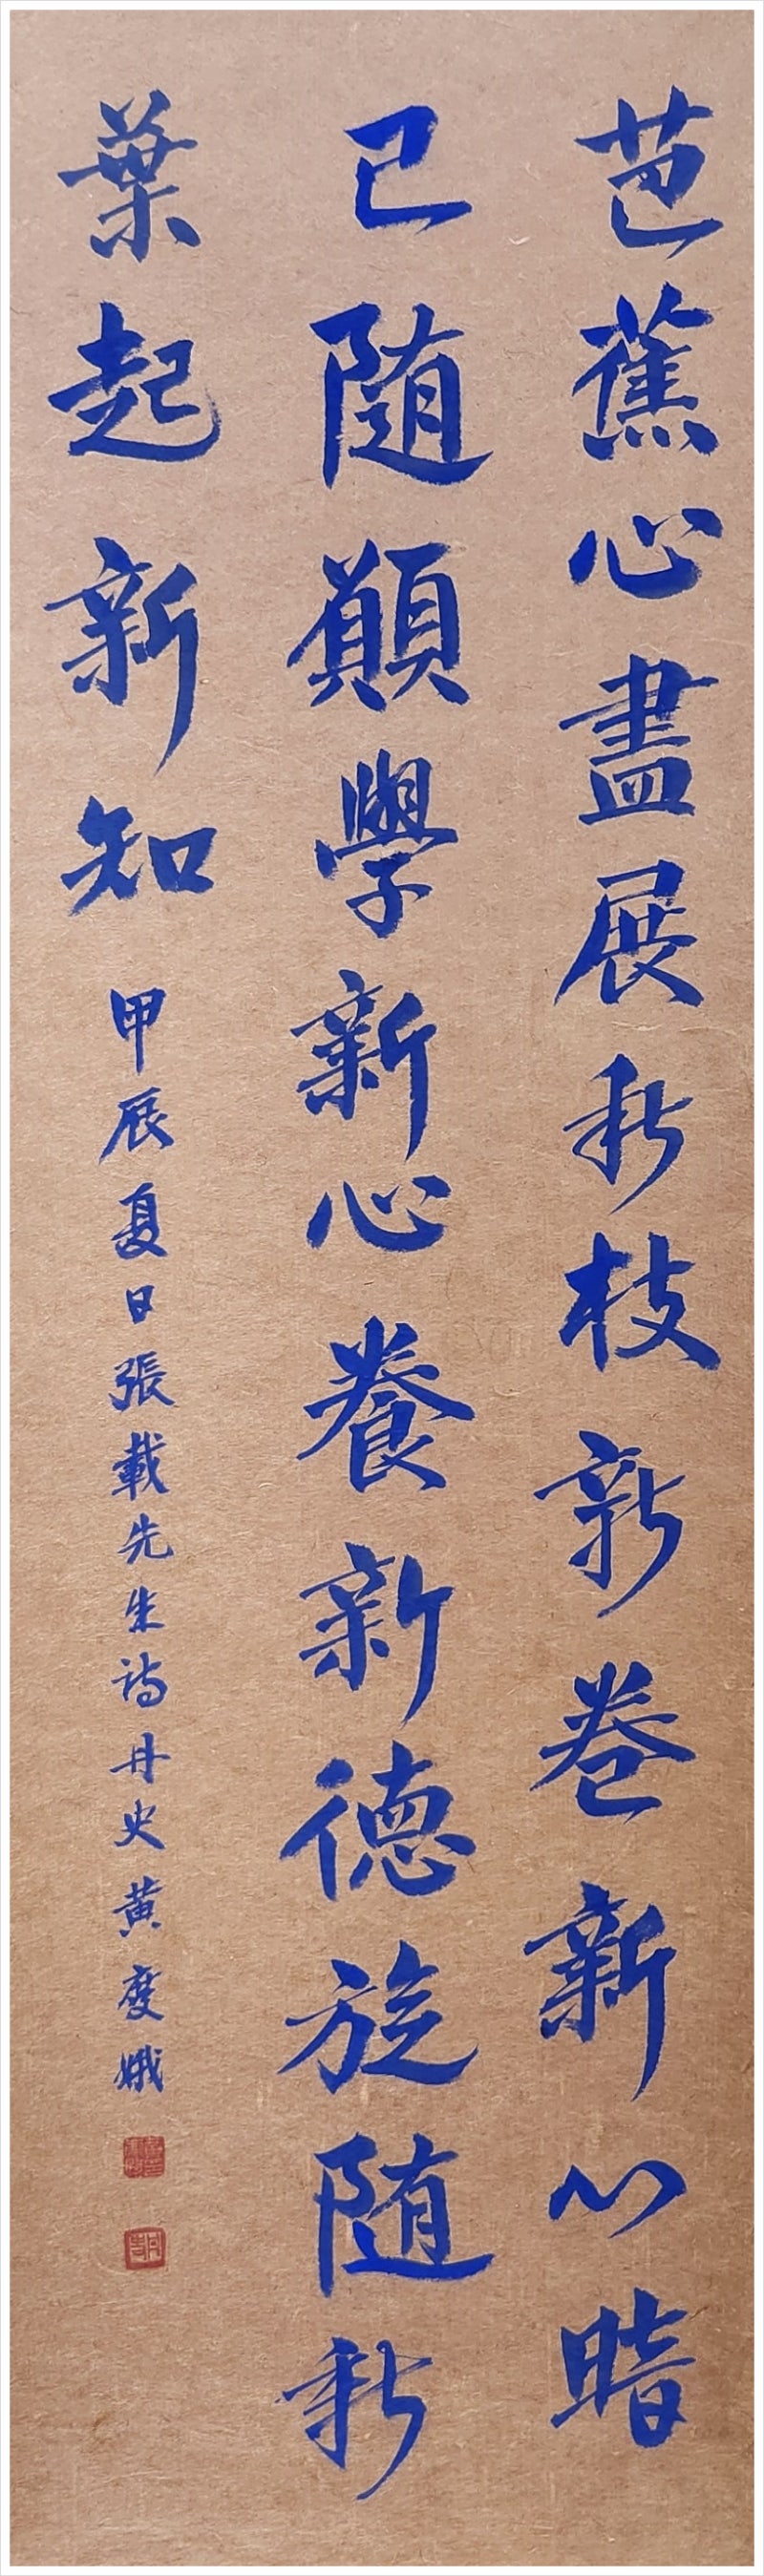 芭蕉心盡展新枝新卷新心暗
已随願學新心養新德旋随新
葉起新知
甲辰夏日張載先生詩丹史黄慶娥